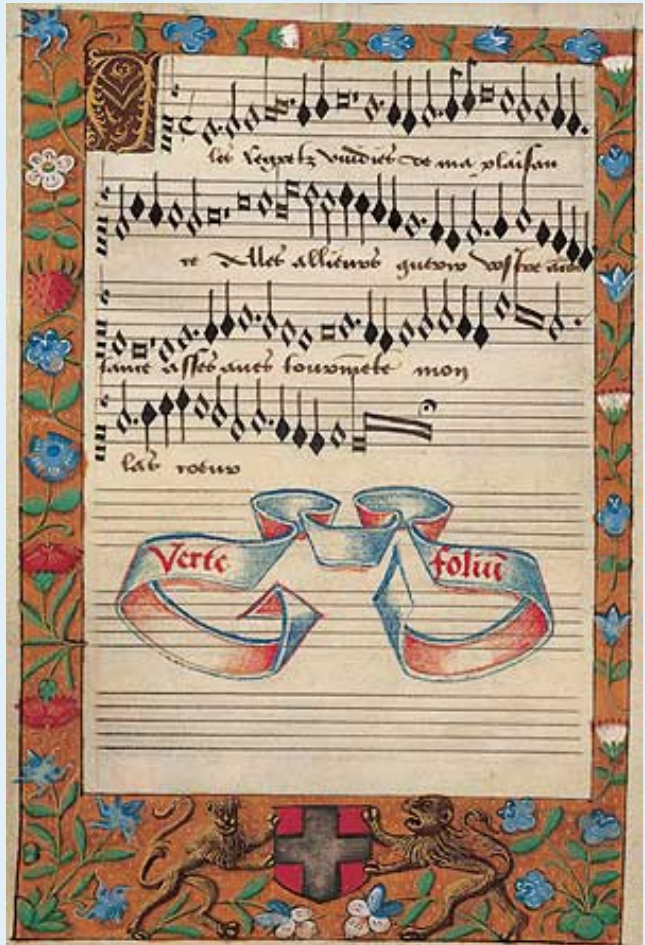 les regretz vuidies de ma plaisan
ce Alles allieurs querir vostre
tance asses aues tourmete mon
las coeur
Verte foliū